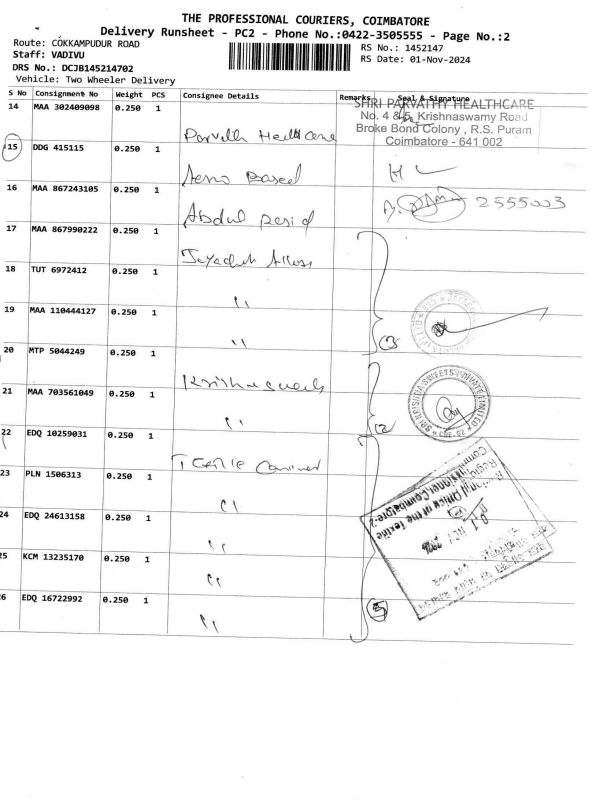 THE PROFESSIONAL COURIERS, COIMBATORE
Delivery Runsheet - PC2 - Phone No.:0422-3505555 - Page No.:2
Route: COKKAMPUDUR ROAD
RS No.: 1452147
Staff: VADIVU
RS Date: 01-Nov-2024
DRS No.: DCJB145214702
Vehicle: Two Wheeler Delivery
S No Consignment No Weight PCS Consignee Details Remarks Seal & Signature
SHRI PARVATHY HEALTHCARE
No. 4 & 5, Krishnaswamy Road
Broke Bond Colony, R.S. Puram
Coimbatore - 641 002
14 MAA 302409098 0.250 1 Parvath Healthcare
15 DDG 415115 0.250 1
16 MAA 867243105 0.250 1 Abdul 2555003
17 MAA 867990222 0.250 1
18 TUT 6972412 0.250 1 "
19 MAA 110444127 0.250 1 " (3)
20 MTP 5044249 0.250 1 Krishnasweets
SRI KRISHNA SWEETS PRIVATE LIMITED
21 MAA 703561049 0.250 1 " (2
22 EDQ 10259031 0.250 1
Regional Office of the Textile
Commissioner, Coimbatore-2
23 PLN 1506313 0.250 1 "
24 EDQ 24613158 0.250 1 "
25 KCM 13235170 0.250 1 "
26 EDQ 16722992 0.250 1 " 5